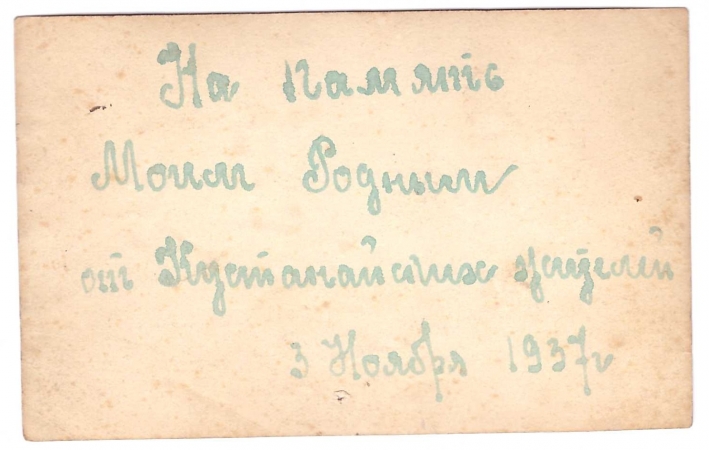 На Память
Моим Родным
от Кустанайских жителей
3 Ноября 1937г